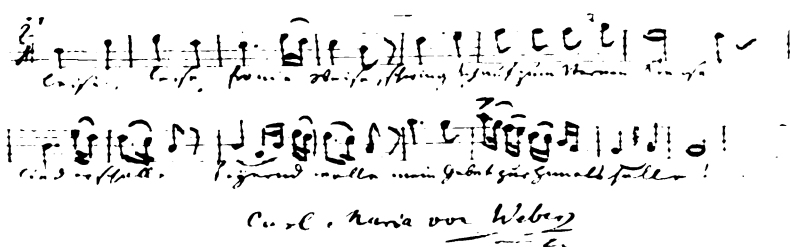 Leise, leise, fromme Weise, schwing dich auf zum Sternenkreise
Lied erschalle! Feyernd walle mein Gebet zur Himmelshalle!
Carl Maria von Weber